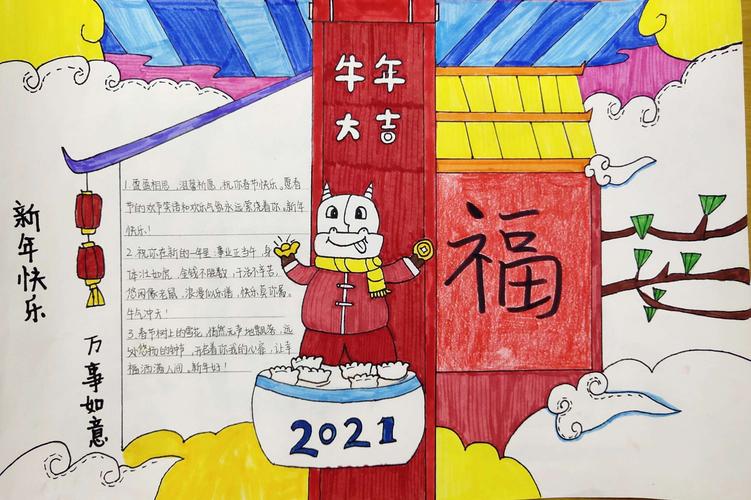 牛年
大吉
新年快乐
万事如意
1.营造相思,温馨祈愿,祝你春节快乐。愿春
节的欢声笑语和欢乐气氛永远萦绕着你。新年
快乐!
2.祝你在新的一年里:事业正当午,身
体壮如虎,金钱不胜数,干活不辛苦,
悠闲像老鼠,浪漫似乐谱,快乐莫你属。
牛气冲天!
3.春节树上的雪花,悄然无声地飘落,远
处悠扬的钟声,开启着你我的心窗,让幸
福洒满人间。新年好!
福
2021